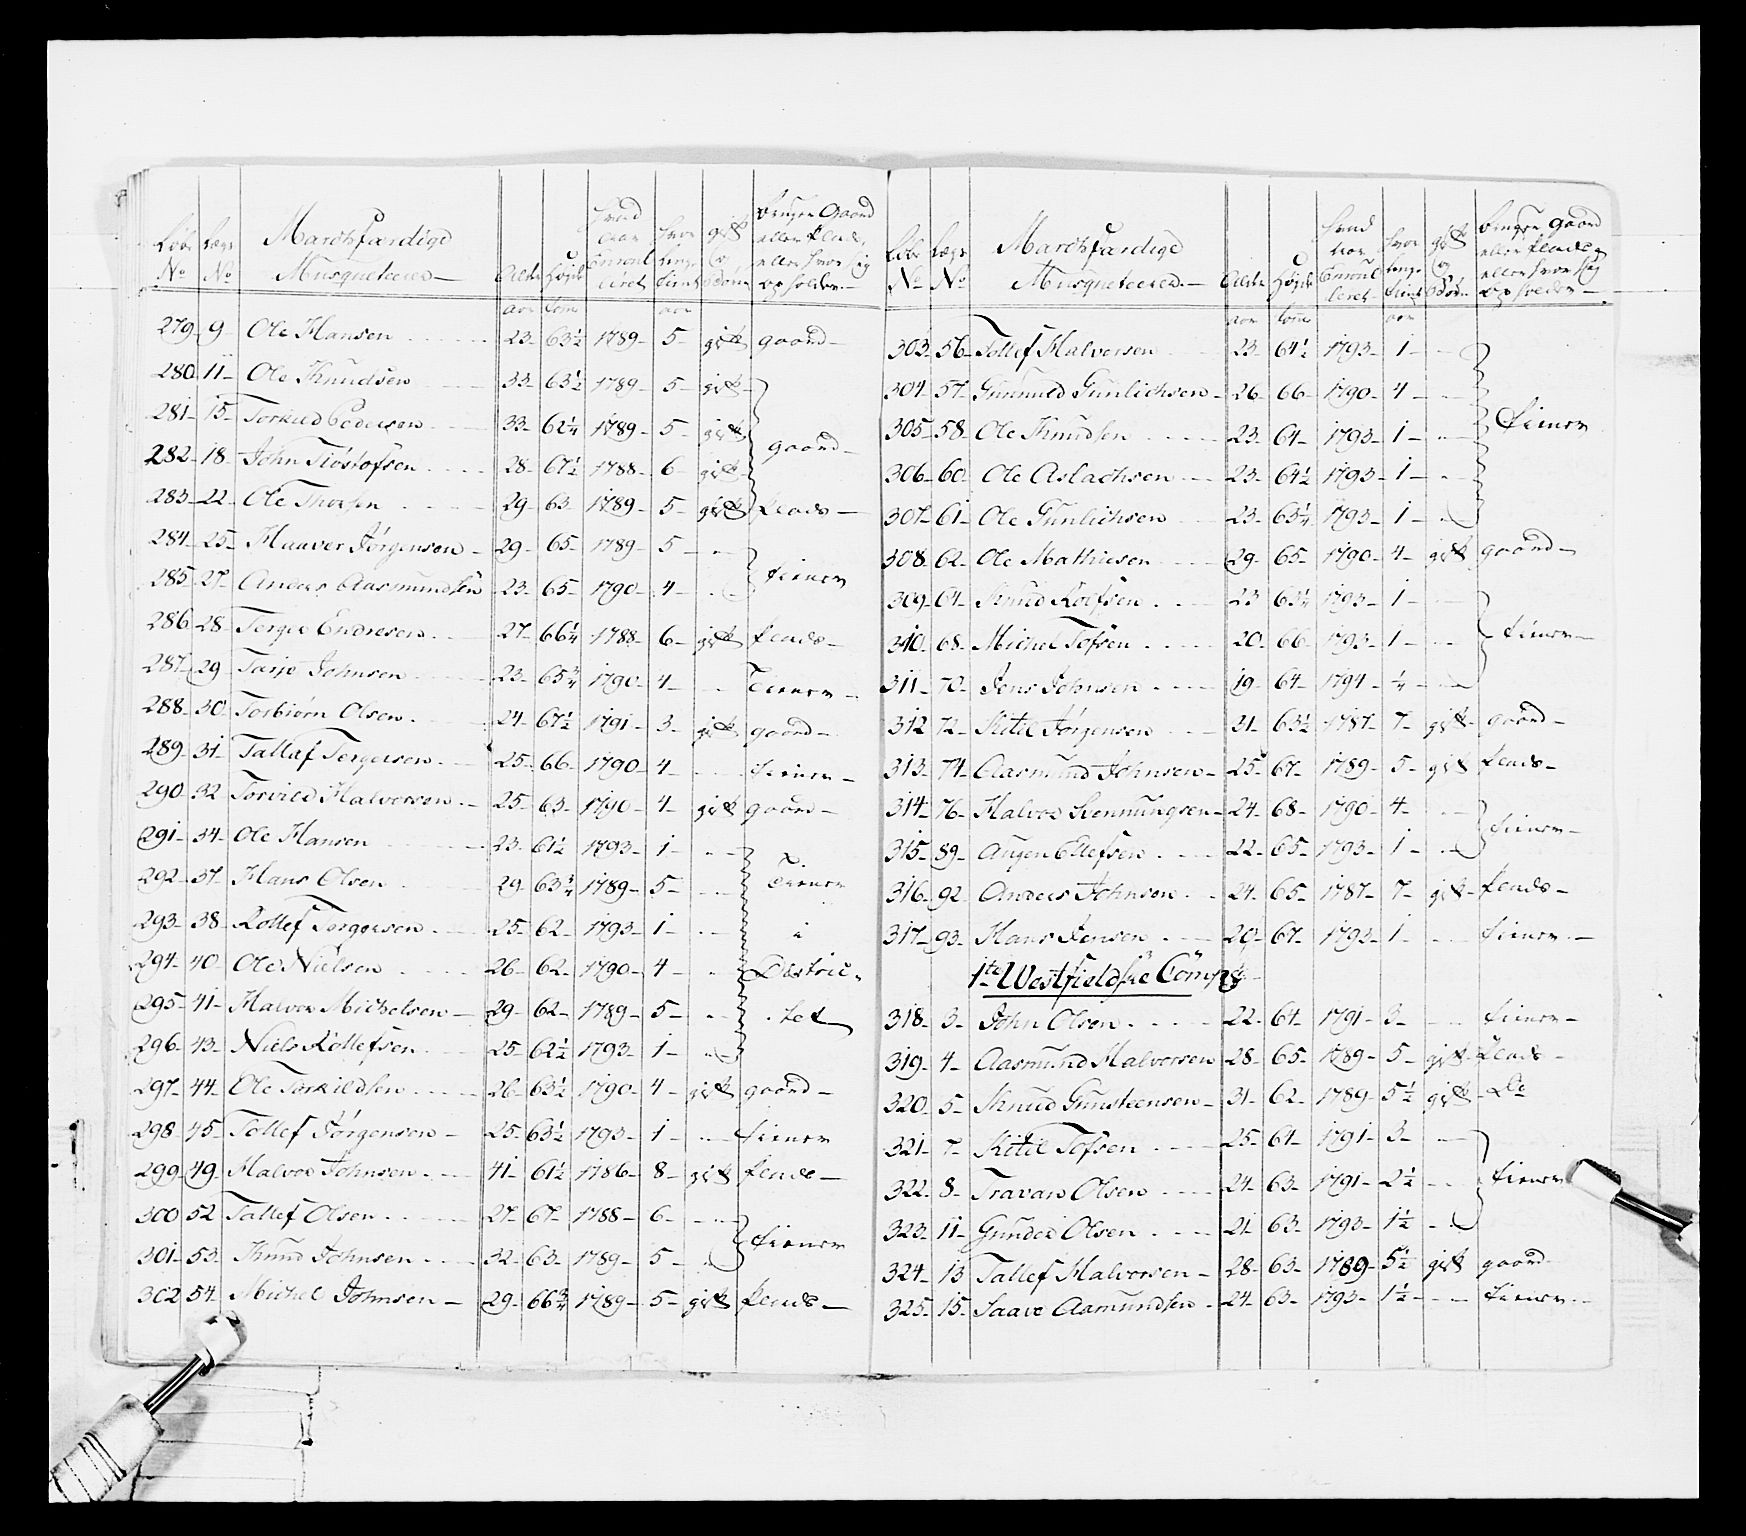 Løbe Lægs Marchfærdige Alder Høyde hvad Aar Enroul leret hvor længe tient gift og Børn bruger Gaard eller Plads, eller hvor sig opholder
No No Musqueteerer aar tom aar
279 9 Ole Hansen 23 63½ 1789 5 gift gaard
280 11 Ole Knudsen 33 63½ 1789 5 gift
281 15 Torkild Pedersen 33 62¼ 1789 5 gift gaard
282 18 John Tiøstofsen 28 67½ 1788 6 gift
283 22 Ole Thorsen 29 63 1789 5 gift plads
284 25 Haaver Jørgensen 29 65 1789 5
285 27 Anders Aasmundsen 23 65 1790 4 tiener
286 28 Tergie Endresen 27 66¼ 1788 6 gift plads
287 29 Tarje Johnsen 23 65¾ 1790 4 Tiener
288 30 Torbiørn Olsen 24 67½ 1791 3 gift gaard
289 31 Tallaf Tergersen 25 66 1790 4 tiener
290 32 Torvild Halvorsen 25 63 1790 4 gift gaard
291 34 Ole Hansen 23 61½ 1793 1
292 37 Hans Olsen 29 63¾ 1789 5 Tiener
293 38 Rollef Torgersen 25 62 1793 1 i
294 40 Ole Nielsen 26 62 1790 4 District
295 41 Halvor Michelsen 29 62 1789 5 tet
296 43 Niels Rollefsen 25 62½ 1793 1
297 44 Ole Torkildsen 26 63½ 1790 4 gift gaard
298 45 Tollef Jørgensen 25 63½ 1793 1 tiener
299 49 Halvor Johnsen 41 61½ 1786 8 gift plads
300 52 Tallef Olsen 27 67 1788 6
301 53 Knud Johnsen 32 63 1789 5 tiener
302 54 Michel Johnsen 29 66¾ 1789 5 gift plads
Løbe Lægs Marchfærdige Alder Høyde hvad aar Enroul leret hvor længe tient gift og Børn bruger gaard eller plads, eller hvor sig opholder
No No Musqueteerer aar tome aar
303 56 Tollef Halvorsen 23 64½ 1793 1
304 57 Gunnuld Gunlichsen 26 66 1790 4
305 58 Ole Knudsen 23 64 1793 1 tiener
306 60 Ole Aslachsen 23 64½ 1793 1
307 61 Ole Gunlichsen 23 63¼ 1793 1
308 62 Ole Mathiesen 29 65 1790 4 gift gaard
309 64 Knud Rolfsen 23 63¼ 1793 1
310 68 Michel Tofsen 20 66 1793 1 tiener
311 70 Jens Johnsen 19 64 1794 ¼
312 72 Kitil Jørgensen 31 63½ 1787 7 gift gaard
313 74 Aasmund Johnsen 25 67 1789 5 gift plads
314 76 Halvor Svennungsen 24 68 1790 4
315 89 Augen Ellefsen 22 65 1793 1 tiener
316 92 Anders Johnsen 24 65 1787 7 gift plads
317 93 Hans Jensen 20 67 1793 1 tiener
1te Westfieldske Comp:
318 3 John Olsen 22 64 1791 3 tiener
319 4 Aasmund Halvorsen 28 65 1789 5 gift Plads
320 5 Knud Gunsteensen 31 62 1789 5½ gift Do
321 7 Kitil Tofsen 25 64 1791 3
322 8 Travan Olsen 24 63 1791 2½ tiener
323 11 Gunder Olsen 21 63 1793 1½
324 13 Tallef Halvorsen 28 63 1789 5½ gift gaard
325 15 Saave Asmundsen 24 63 1793 1½ tiener